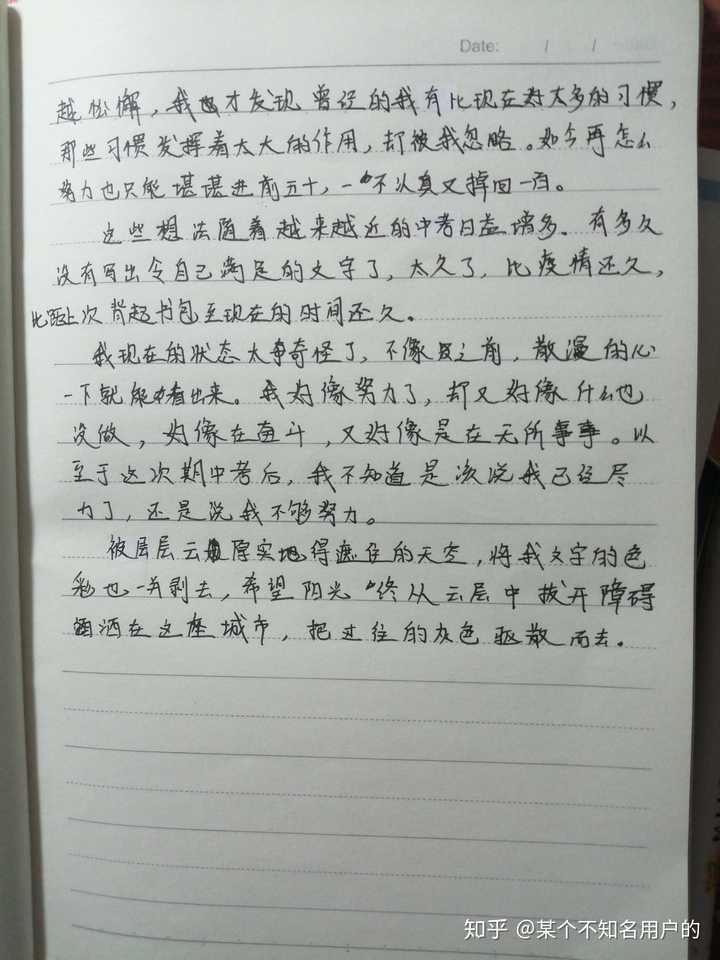 Date: / /
越松懈，我也才发现曾经的我有比现在好太多的习惯，
那些习惯发挥着太大的作用，却被我忽略。如今再怎么
努力也只能堪堪进前五十，一不认真又掉回一百。
这些想法随着越来越近的中考日益增多。有多久
没有写出令自己满足的文字了，太久了，比疫情还久，
比距上次背起书包至现在的时间还久。
我现在的状态太奇怪了，不像之前，散漫的心
一下就能看出来。我好像努力了，却又好像什么也
没做，好像在奋斗，又好像是在无所事事。以
至于这次期中考后，我不知道是该说我已经尽
力了，还是说我不够努力。
被层层云厚实地得遮住的天空，将我文字的色
彩也一并剥去，希望阳光终从云层中拨开障碍
洒在这座城市，把过往的灰色驱散而去。
知乎 @某个不知名用户的